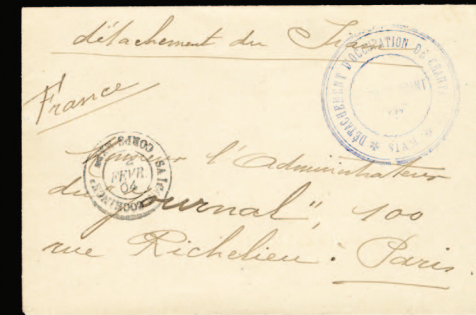 détachement du Siam
France
DÉTACHEMENT D'OCCUPATION DE
CORPS
SAIGON
2
FEVR
04
Monsieur l'Administrateur
du "Journal", 100
rue Richelieu. Paris.